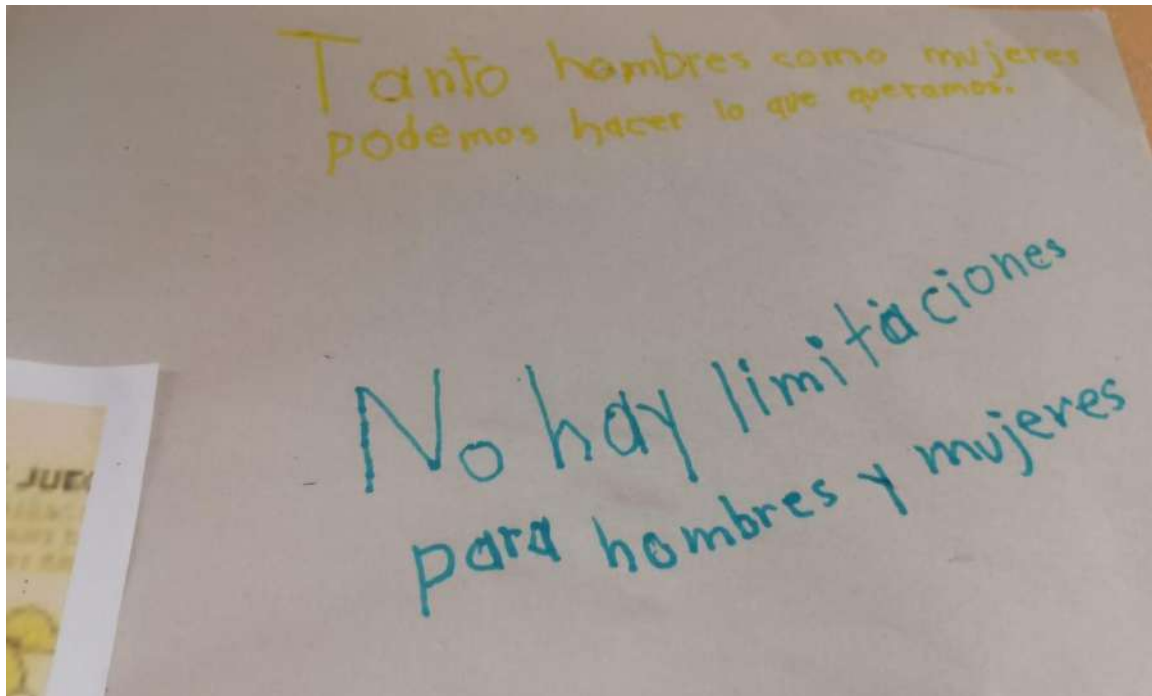 Tanto hombres como mujeres
podemos hacer lo que queramos.
No hay limitaciones
para hombres y mujeres